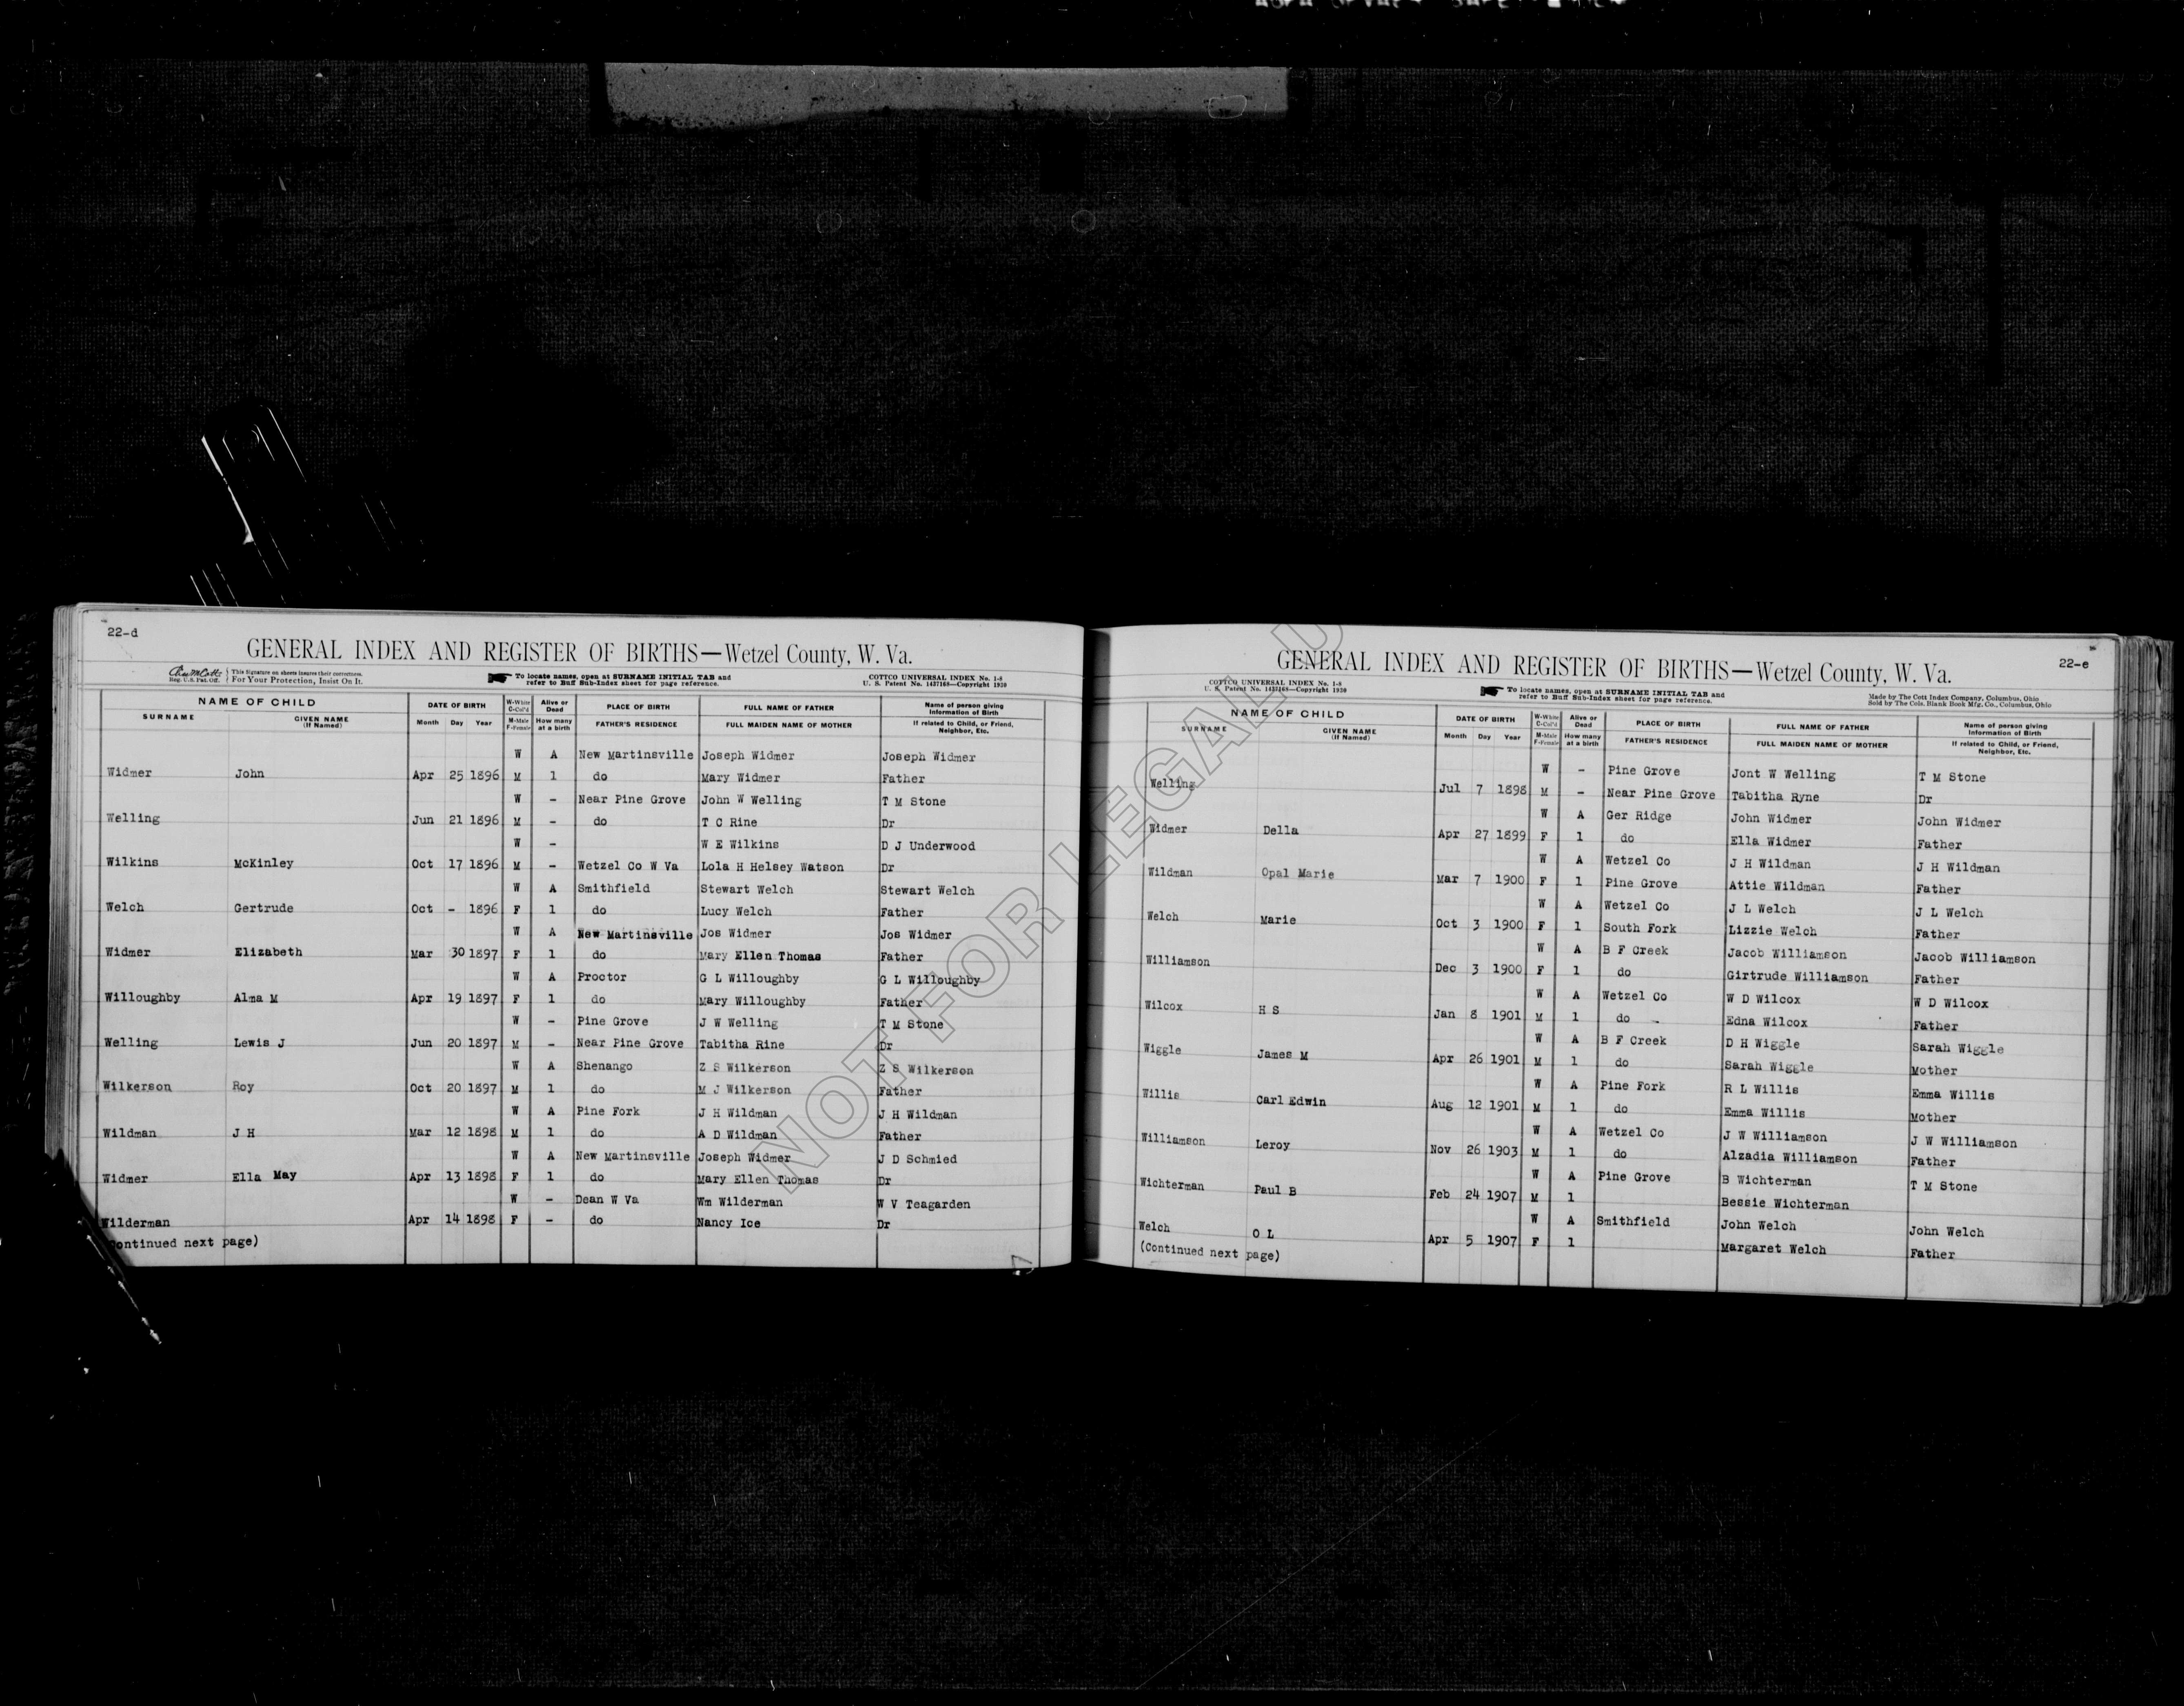 22-d
GENERAL INDEX AND REGISTER OF BIRTHS—Wetzel County, W. Va.
Reg. U.S. Pat. Off. This Signature on sheets insures their correctness. For Your Protection, Insist On It.
To locate names, open at SURNAME INITIAL TAB and refer to Buff Sub-Index sheet for page reference.
COTTCO UNIVERSAL INDEX No. 1-8
U. S. Patent No. 1437168—Copyright 1930
NAME OF CHILD DATE OF BIRTH W-White C-Col'd Alive or Dead PLACE OF BIRTH FULL NAME OF FATHER Name of person giving Information of Birth
SURNAME GIVEN NAME (If Named) Month Day Year M-Male F-Female How many at a birth FATHER'S RESIDENCE FULL MAIDEN NAME OF MOTHER If related to Child, or Friend, Neighbor, Etc.
W A New Martinsville Joseph Widmer Joseph Widmer
Widmer John Apr 25 1896 M 1 do Mary Widmer Father
W - Near Pine Grove John W Welling T M Stone
Welling Jun 21 1896 M - do T C Rine Dr
W - W E Wilkins D J Underwood
Wilkins McKinley Oct 17 1896 M - Wetzel Co W Va Lola H Helsey Watson Dr
W A Smithfield Stewart Welch Stewart Welch
Welch Gertrude Oct - 1896 F 1 do Lucy Welch Father
W A New Martinsville Jos Widmer Jos Widmer
Widmer Elizabeth Mar 30 1897 F 1 do Mary Ellen Thomas Father
W A Proctor G L Willoughby G L Willoughby
Willoughby Alma M Apr 19 1897 F 1 do Mary Willoughby Father
W - Pine Grove J W Welling T M Stone
Welling Lewis J Jun 20 1897 M - Near Pine Grove Tabitha Rine Dr
W A Shenango Z S Wilkerson Z S Wilkerson
Wilkerson Roy Oct 20 1897 M 1 do M J Wilkerson Father
W A Pine Fork J H Wildman J H Wildman
Wildman J H Mar 12 1898 M 1 do A D Wildman Father
W A New Martinsville Joseph Widmer J D Schmied
Widmer Ella May Apr 13 1898 F 1 do Mary Ellen Thomas Dr
W - Dean W Va Wm Wilderman W V Teagarden
Wilderman Apr 14 1898 F - do Nancy Ice Dr
(Continued next page)
22-e
GENERAL INDEX AND REGISTER OF BIRTHS—Wetzel County, W. Va.
COTTCO UNIVERSAL INDEX No. 1-8
U. S. Patent No. 1437168—Copyright 1930
To locate names, open at SURNAME INITIAL TAB and refer to Buff Sub-Index sheet for page reference.
Made by The Cott Index Company, Columbus, Ohio
Sold by The Cols. Blank Book Mfg. Co., Columbus, Ohio
NAME OF CHILD DATE OF BIRTH W-White C-Col'd Alive or Dead PLACE OF BIRTH FULL NAME OF FATHER Name of person giving Information of Birth
SURNAME GIVEN NAME (If Named) Month Day Year M-Male F-Female How many at a birth FATHER'S RESIDENCE FULL MAIDEN NAME OF MOTHER If related to Child, or Friend, Neighbor, Etc.
W - Pine Grove Jont W Welling T M Stone
Welling Jul 7 1898 M - Near Pine Grove Tabitha Ryne Dr
W A Ger Ridge John Widmer John Widmer
Widmer Della Apr 27 1899 F 1 do Ella Widmer Father
W A Wetzel Co J H Wildman J H Wildman
Wildman Opal Marie Mar 7 1900 F 1 Pine Grove Attie Wildman Father
W A Wetzel Co J L Welch J L Welch
Welch Marie Oct 3 1900 F 1 South Fork Lizzie Welch Father
W A B F Creek Jacob Williamson Jacob Williamson
Williamson Dec 3 1900 F 1 do Girtrude Williamson Father
W A Wetzel Co W D Wilcox W D Wilcox
Wilcox H S Jan 8 1901 M 1 do Edna Wilcox Father
W A B F Creek D H Wiggle Sarah Wiggle
Wiggle James M Apr 26 1901 M 1 do Sarah Wiggle Mother
W A Pine Fork R L Willis Emma Willis
Willis Carl Edwin Aug 12 1901 M 1 do Emma Willis Mother
W A Wetzel Co J W Williamson J W Williamson
Williamson Leroy Nov 26 1903 M 1 do Alzadia Williamson Father
W A Pine Grove B Wichterman T M Stone
Wichterman Paul B Feb 24 1907 M 1 Bessie Wichterman
W A Smithfield John Welch John Welch
Welch O L Apr 5 1907 F 1 Margaret Welch Father
(Continued next page)
NOT FOR LEGAL U